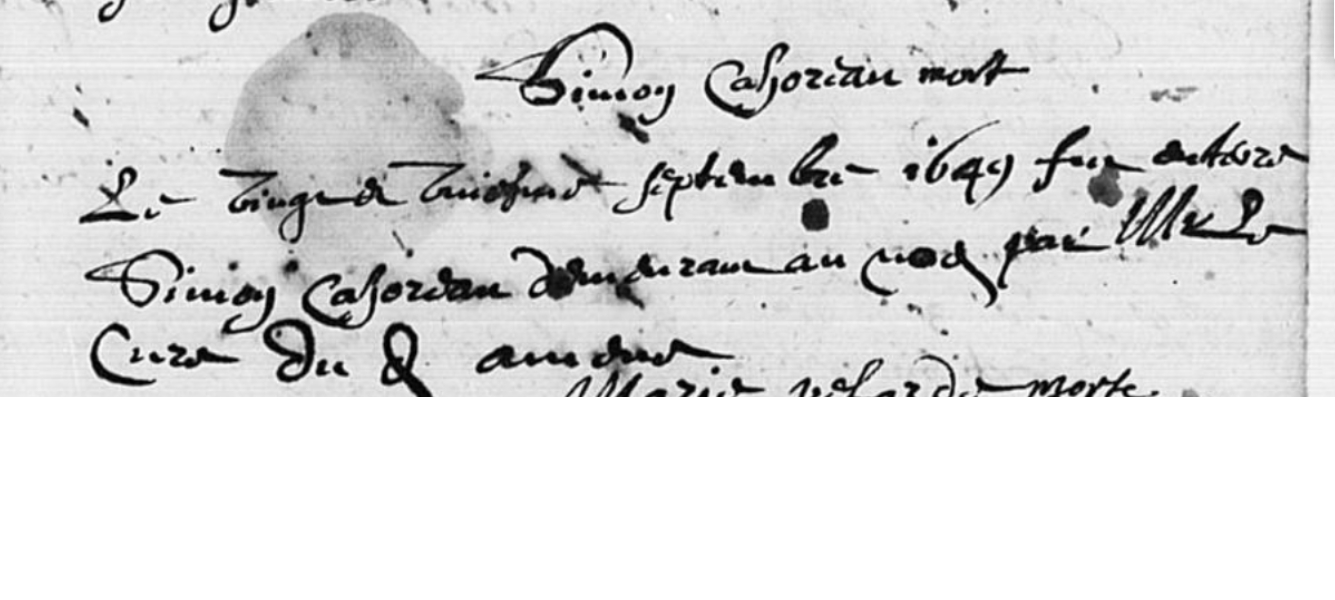 Simon Cahoreau mort
Le vingt et huictiesme septembre 1649 fut enterre
Simon Cahoreau demeurant au par Mr Le
Cure du
Marie morte